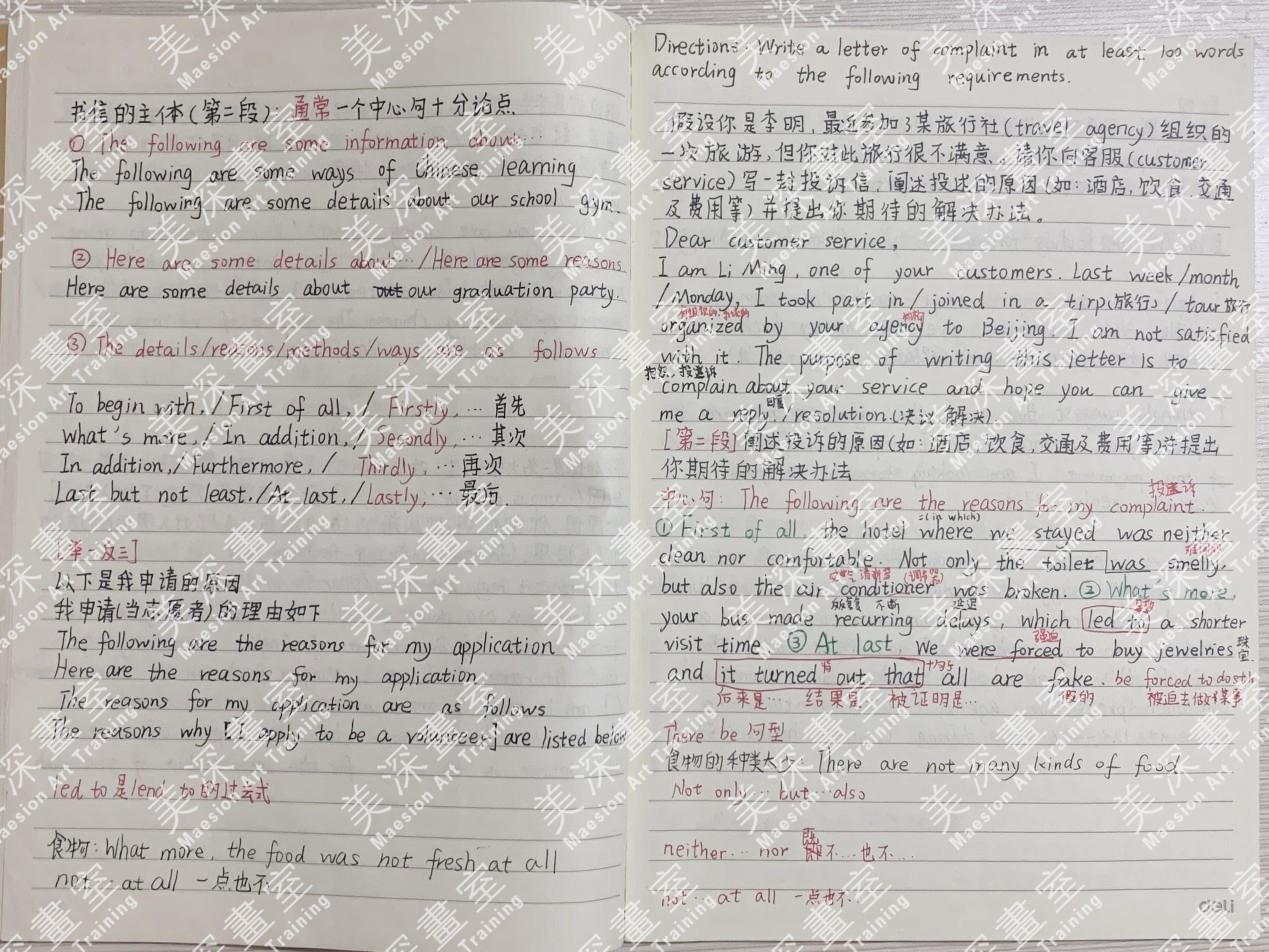 书信的主体(第二段): 通常一个中心句十分论点
① The following are some information about...
The following are some ways of Chinese learning
The following are some details about our school gym.
② Here are some details about.../Here are some reasons
Here are some details about out our graduation party.
③ The details/reasons/methods/ways are as follows
To begin with,/First of all,/ Firstly, ... 首先
What's more,/In addition,/ Secondly, ... 其次
In addition,/Furthermore,/ Thirdly, ... 再次
Last but not least,/At last,/Lastly, ... 最后
[举一反三]
以下是我申请的原因
我申请(当志愿者)的理由如下
The following are the reasons for my application
Here are the reasons for my application
The reasons for my application are as follows
The reasons why [I apply to be a volunteer] are listed below
led to 是lend to 的过去式
食物: What more, the food was not fresh at all
not... at all 一点也不
Directions: Write a letter of complaint in at least 100 words
according to the following requirements.
假设你是李明,最近参加了某旅行社(travel agency)组织的
一次旅游,但你对此旅行很不满意。请你向客服(customer
service)写一封投诉信,阐述投述的原因(如:酒店,饮食,交通
及费用等)并提出你期待的解决办法。
Dear customer service,
I am Li Ming, one of your customers. Last week/month
/Monday, I took part in/joined in a tirp(旅行)/tour旅行
organized by your agency to Beijing. I am not satisfied
with it. The purpose of writing this letter is to
抱怨,投诉
complain about your service and hope you can give
回复
me a reply/resolution.(决议 解决)
[第二段]阐述投诉的原因(如:酒店,饮食,交通及费用等)并提出
你期待的解决办法
中心句: The following are the reasons for my complaint.
(in which)
① First of all, the hotel where we stayed was neither
clean nor comfortable. Not only the toilet was smelly,
but also the air conditioner was broken. ② What's more,
不断 延迟 导致
your bus made recurring delays, which led to a shorter
强迫
visit time. ③ At last, We were forced to buy jewelries 珠宝
and it turned out that all are fake. be forced to do sth
后来是... 结果是 被证明是... 假的 被迫去做某事
There be 句型
食物的种类太少: There are not many kinds of food
Not only... but... also
neither... nor 既不...也不...
not... at all 一点也不...
deli
美深畫室
Maesion Art Training